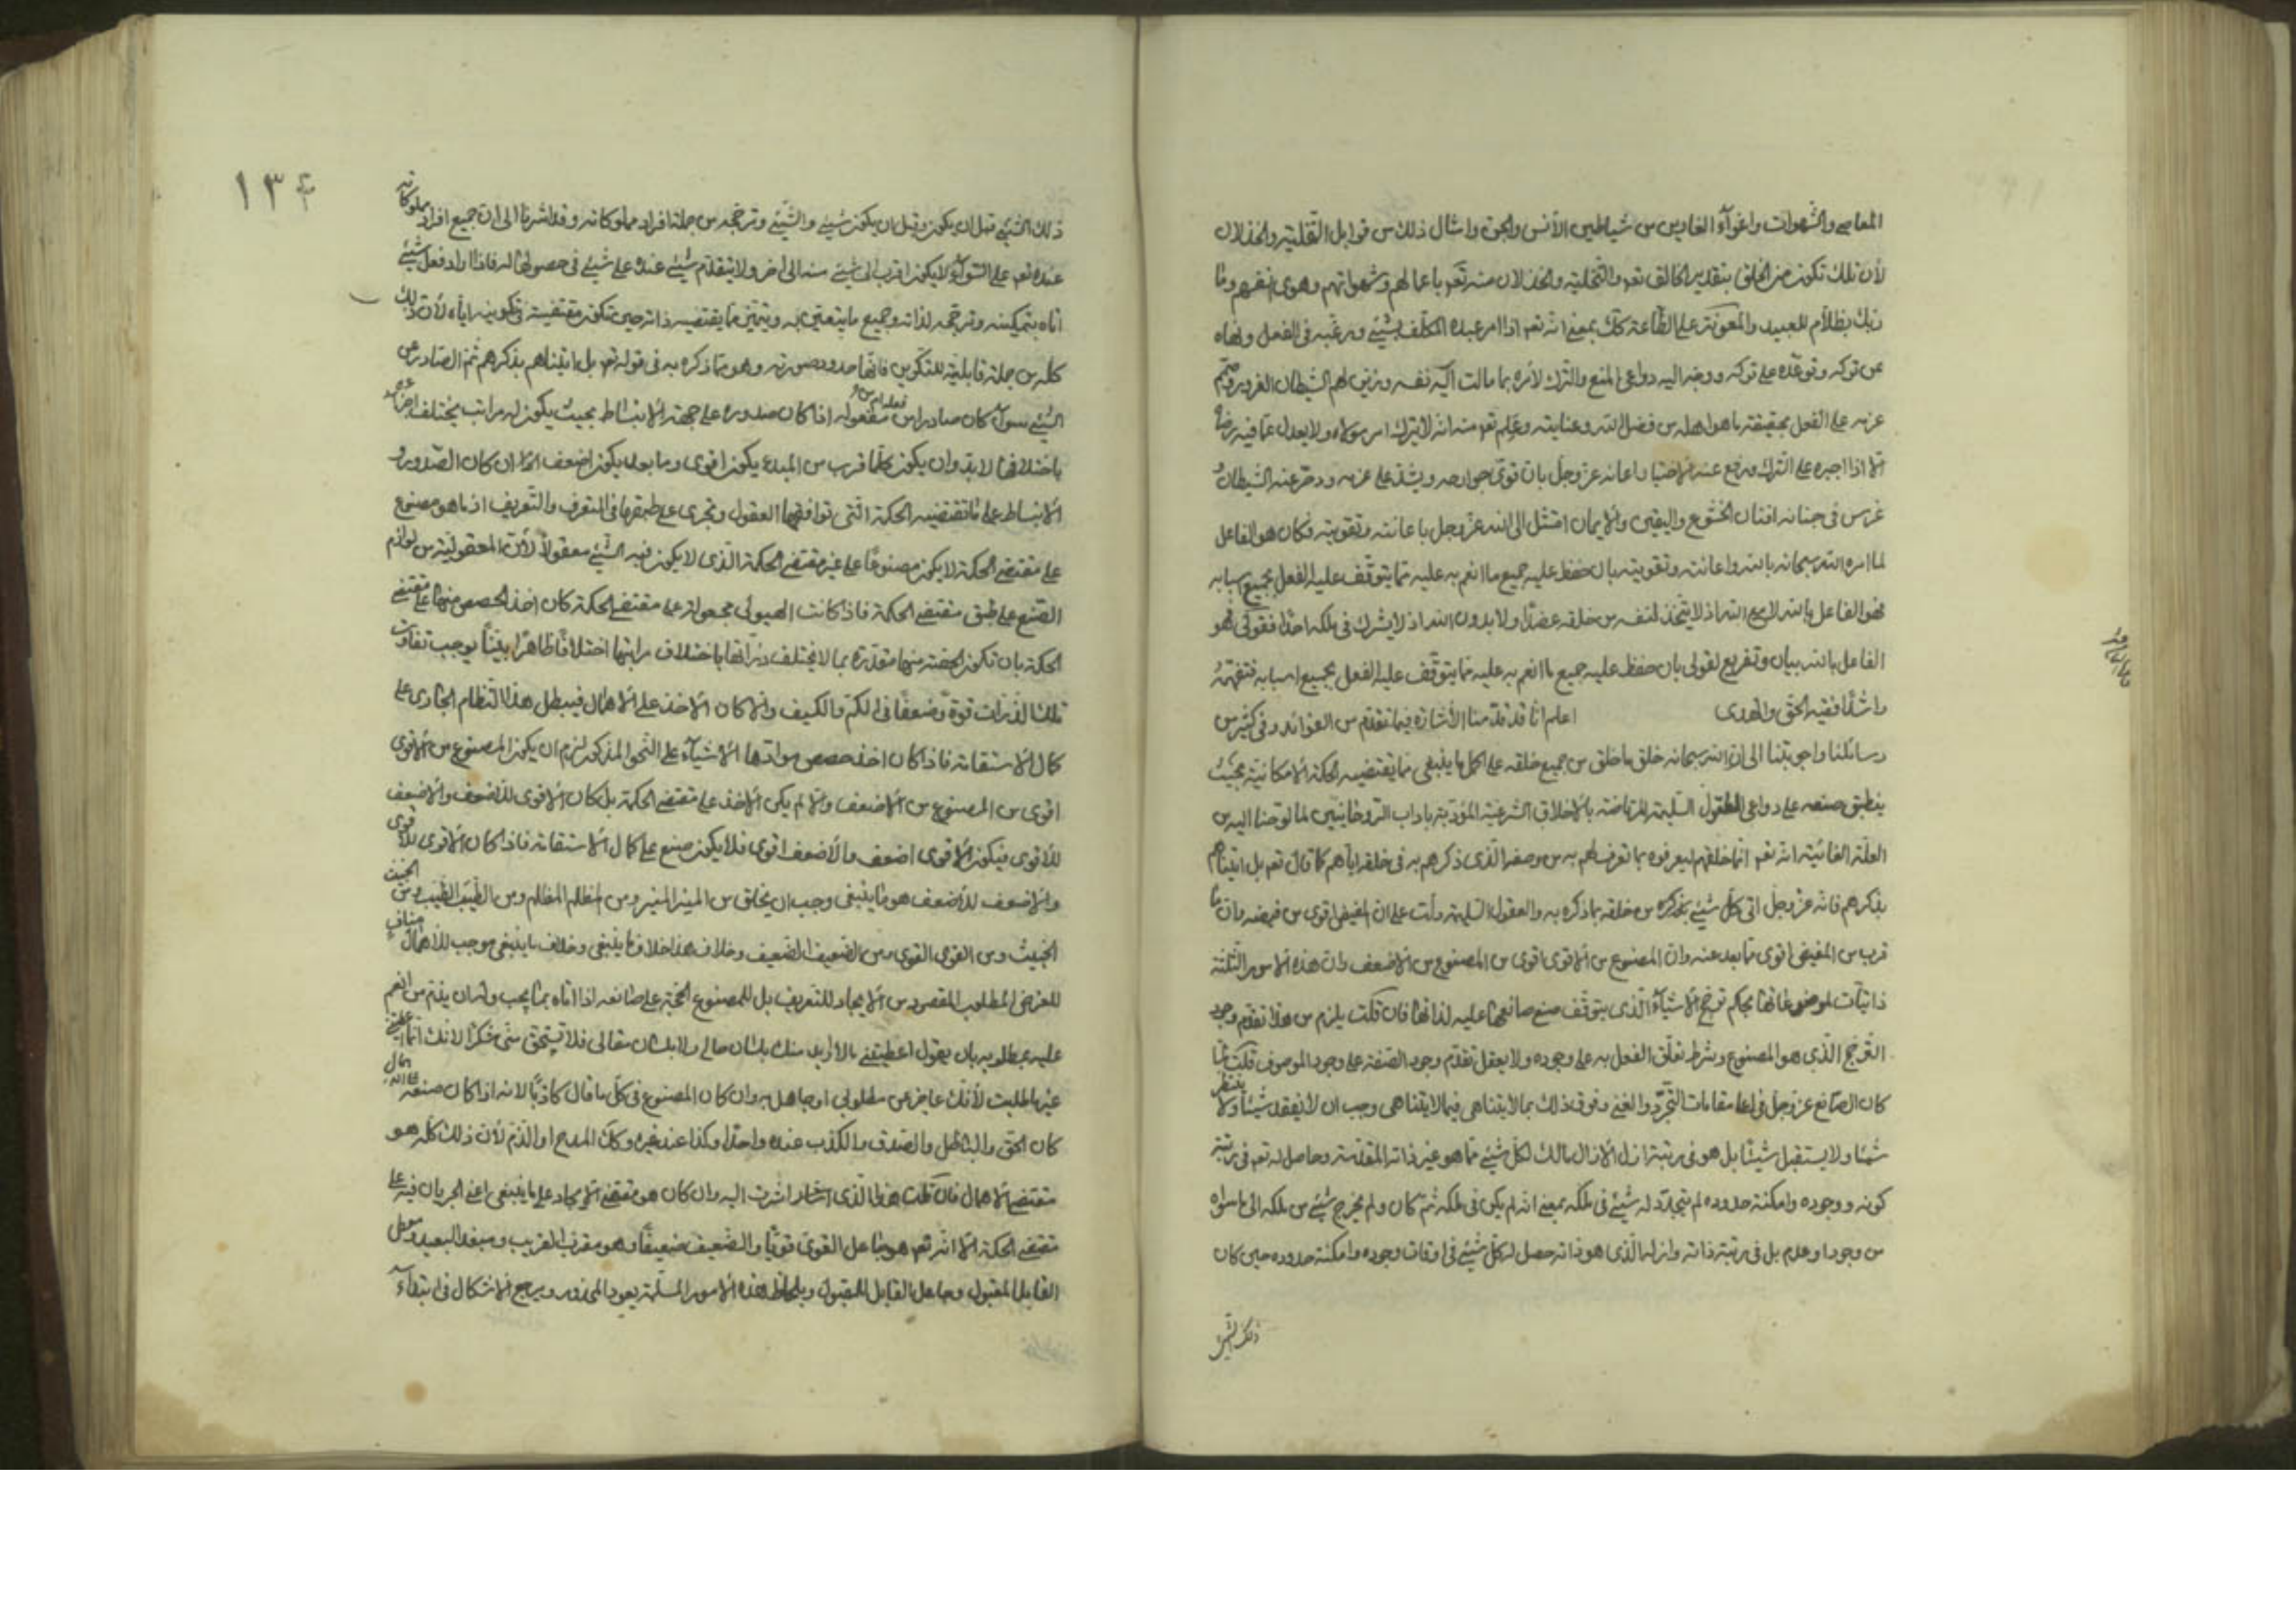 المعاصي والشهوات واغوآء الغاوين من شياطين الأنس والجن وامثال ذلك من قوابل التخلية والخذلان
لأن تلك تكون من الخلق بتقدير الخالق تعم والتخلية والخذلان منه تعم باعمالهم وشهواتهم وهوى انفسهم وما
ربك بظلام للعبيد والمعونة على الطّاعة كك بمعنى انه تعم اذا امر عبده المكلّف بشيئ ورغّبه في الفعل ونهاه
عن تركه وتوعّده على تركه ووجه اليه دواعى المنع والترك لأمره بما مالت اليه نفسه وزيّن لهم الشيطان الغرور
عزمه على الفعل بحقيقة ما هو اهله من فضل الله وعنايته وعلم تعم منه انه لا يترك امر مولاه ولا يعدل عما فيه رضاه
الّا اذا اجبره على الترك ورفع عنه الاختيار اعانه عزوجل بان قوّى جوارحه ويشدّ على عزمه ودحر عنه الشيطان و
غرس في جنانه افنان الخشوع واليقين والإيمان امتثل الى الله عزوجل باعانته وتقويته فكان هو الفاعل
لما امره الله سبحانه بالله واعانته وتقويته بان حفظ عليه جميع ما انعم به عليه مما يتوقف عليه الفعل بجميع اسبابه
فهو الفاعل بالله لا مع الله اذ لا يتخذ لنفسه من خلقه عضدًا ولا بدون الله اذ لا يشرك في ملكه احدًا فقولى فهو
الفاعل بالله بيان وتفريع لقولى بان حفظ عليه جميع ما انعم به عليه مما يتوقّف عليه الفعل بجميع اسبابه فتفهّمه
راشدًا ففيه الحق والهدى اعلم انّا قد قدّمنا الأشارة فيما تقدم من الفوائد وفي كثير من
رسائلنا واجوبتنا الى ان الله سبحانه خلق ما خلق من جميع خلقه على اكمل ما ينبغى مما يقتضيه الحكمة الامكانيّة بحيث
ينطبق صنعه على دواعى العقول السليمة المرتاضة بالاخلاق الشرعية المؤدّبة باداب الروحانيين لما لوحنا اليه من
العلّة الغائيّة انه تعم انما خلقهم ليعرفوه بما تعرف لهم به من وصفه الذى ذكرهم به في خلقه اياهم كما قال تعم بل اتيناهم
بذكرهم فانه عزوجل اتى كل شيئ بذكره من خلقه بما ذكره به والعقول السليمة دلت على ان المفيض اقوى من فيضه وان ما
قرب من المفيض اقوى مما بعد عنه وان المصنوع من الاقوى اقوى من المصنوع من الاضعف وان هذه الامور الثلثة
ذاتيّات لموضوعاتها بحكم ترجّح الاشيآء الذى يتوقّف صنع صانعها عليه لذاتها فان قلت يلزم من هذا تقدم وجود
الترجّح الذى هو المصنوع وشرط تعلّق الفعل به على وجوده ولا يعقل تقدّم وجود الصفة على وجود الموصوف قلت لما
كان الصانع عزوجل في اعلا مقامات التجرّد والغنى وفوق ذلك بما لا يتناهى فيما لا يتناهى وجب ان لا يفقد شيئا ولا ينتظر
شيئا ولا يستقبل شيئا بل هو في رتبة ازل الازال مالك لكل شيئ مما هو غير ذاته المقدّسة وحاصل له تعم في رتبة
كونه ووجوده وامكنة حدوده لم يتجدّد له شيئ في ملكه بمعنى انه لم يكن في ملكه ثم كان ولم يخرج شيئ من ملكه الى ما سواه
من وجود او عدم بل في رتبة ذاته وازله الذى هو ذاته حصل له كل شيئ في اوقات وجوده وامكنة حدوده حين كان
ذلك الشيئ
١٣٤
ذلك الشيئ قبل ان يكون وقبل ان يكون شيئ والشيئ وترجّحه من جملة افراد مملوكاته وقد اشرنا الى ان جميع افراد مملوكاته
عنده تعم على السّوآء لا يكون اقرب الى شيئ منه الى اخر ولا يتقدّم شيئ عنده على شيئ في حصولها له فاذا اراد فعل شيئ
اتاه بتمكينه وترجّحه لذاته وجميع ما يتعيّن به ويتميّز مما يقتضيه ذاته حين تكون مقتضية تكوينه اياه لأن ذلك
كله من جملة قابليّة للتكوين فانها حدود صورته وهو مما ذكره به في قوله تعم بل اتيناهم بذكرهم ثم الصّادر عن
الشيئ سوآء كان صادرا من فعله ام من مفعوله اذا كان صدوره على جهة الانبساط بحيث يكون له مراتب يختلف اجزاؤه
باختلافها لا بدّ وان يكون كلما قرب من المبدء يكون اقوى وما بعد يكون اضعف اما ان كان الصّدور و
الانبساط على ما تقتضيه الحكمة التى توافقها العقول وتجرى على طبقها في التعرف والتّعريف اذ ما هو مصنوع
على مقتضى الحكمة لا يكون مصنوعًا على غير مقتضى الحكمة الّذى لا يكون فيه الشيئ معقولًا لأن المعقوليّة من لوازم
الصّنع على طبق مقتضى الحكمة فاذا كانت الهيولى مجعولة على مقتضى الحكمة كان اخذ الحصص منها على مقتضى
الحكمة بان تكون الحصّة منها مقدّرة بما لا تختلف ذرّاتها باختلاف مراتبها اختلافًا ظاهرًا بيّنًا يوجب تفاوت
تلك الذرات قوة وضعفًا في الكم والكيف والا كان الاخذ على الاهمال فيبطل هذا النظام الجارى على
كمال الاستقامة فاذا كان اخذ حصص موادّها الاشيآء على النحو المذكور لزم ان يكون المصنوع من الاقوى
اقوى من المصنوع من الاضعف والا لم يكن الاخذ على مقتضى الحكمة بل كان الاقوى للاضعف والاضعف
للاقوى فيكون الاقوى اضعف والاضعف اقوى فلا يكون صنع على كمال الاستقامة فاذا كان الاقوى للاقوى
والاضعف للاضعف هو ما ينبغى وجب ان يخلق من المنير المنير ومن المظلم المظلم ومن الطّيب الطّيب ومن الخبيث
الخبيث ومن القوى القوى ومن الضعيف الضعيف وخلاف هذا خلاف ما ينبغى وخلاف ما ينبغى موجب للاهمال مناف
للغرض المطلوب المقصود من الايجاد للتعريف بل للمصنوع الحجّة على صانعه اذا اتاه بما يجب وله ان يذم من انعم
عليه بمطلوبه بان يقول اعطيتنى ما لا اريد منك بلسان حالى ولا بلسان مقالى فلا تستحق منّى شكرًا لانك انما اعطيتنى
غير ما طلبت لأنّك عاجز عن مطلوبى او جاهل به وان كان المصنوع في كل ما قال كاذبًا لانه اذا كان صنعه
كان الحق والباطل والصّدق والكذب عنده واحدًا وكذا عند غيره وكك المدح او الذّم لأن ذلك كله هو
مقتضى الاهمال فان قلت هذا الذى اشرت اليه وان كان هو مقتضى الايجاد على ما ينبغى اعنى الجريان فيه على
مقتضى الحكمة الا انه تعم هو جاعل القوى قويًا والضعيف ضعيفًا وهو مقرب القريب ومبعد البعيد ومعطى
القابل المقبول وجاعل القابل للمقبول وبلحاظ هذه الامور المسلّمة يعود المحذور ويرجع الاشكال في ابتدآء